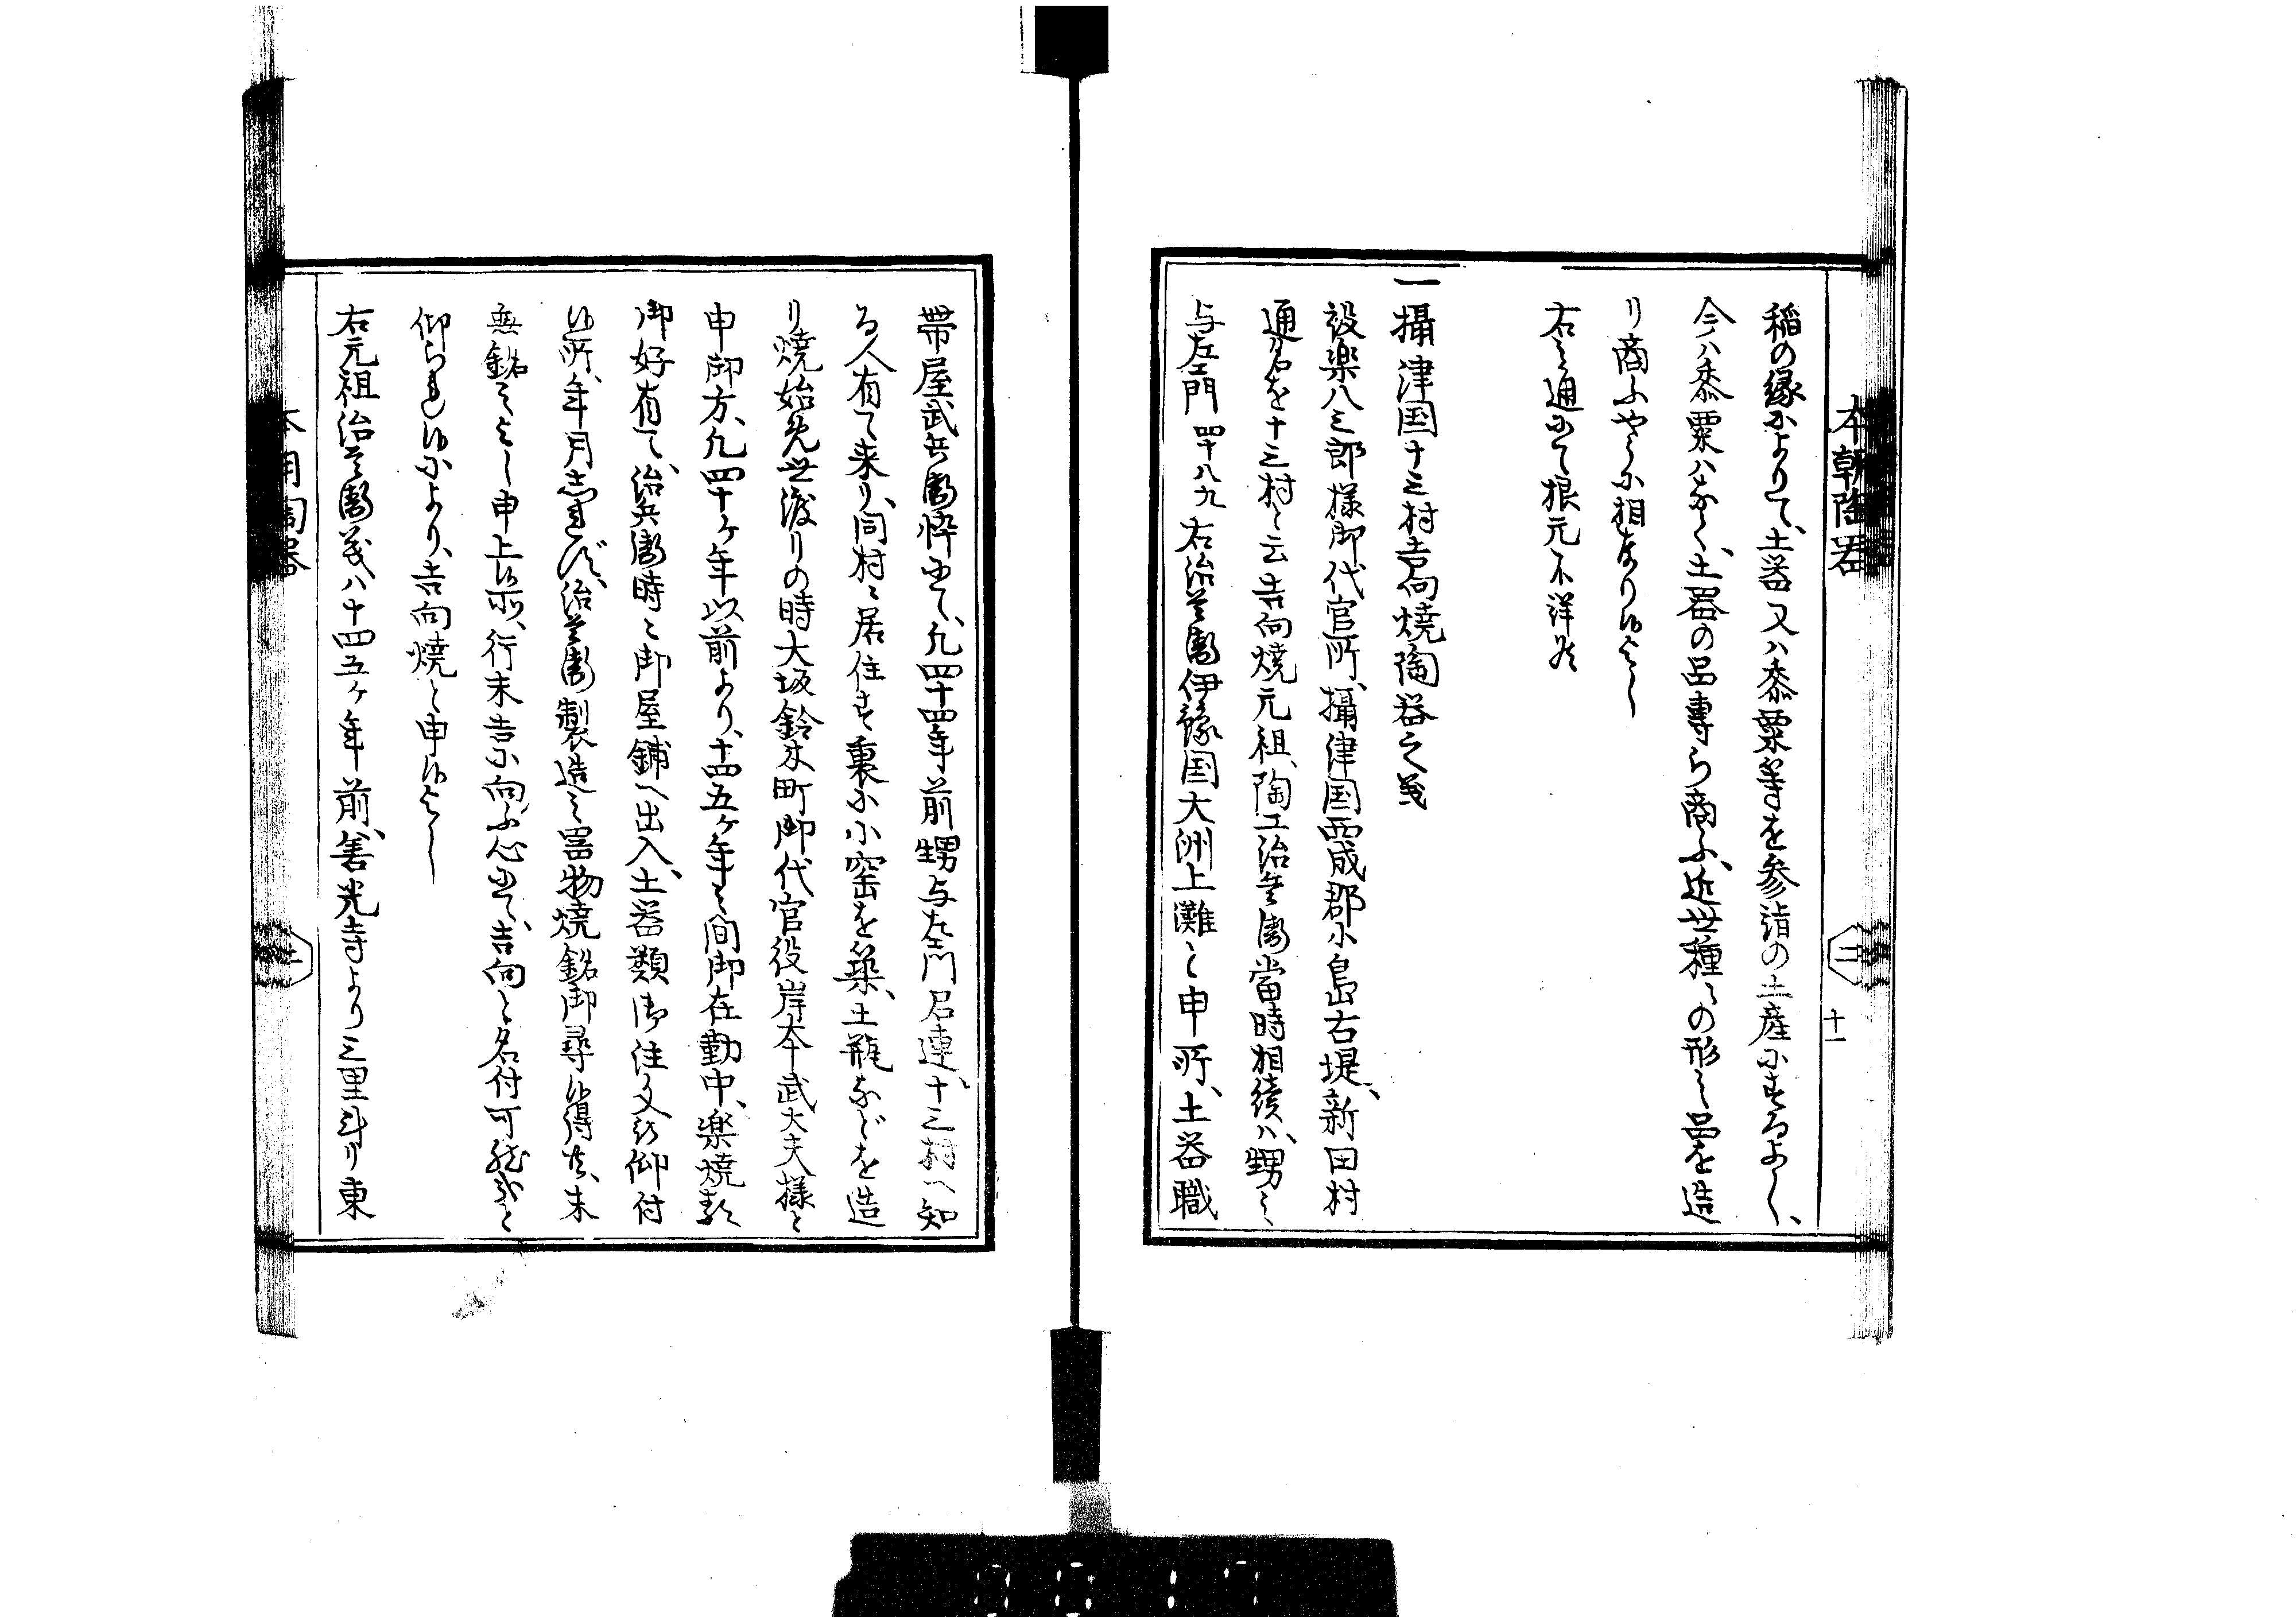 本朝陶器
二
十一
稲の縁によりて、土器又ハ黍粟等を参詣の土産にするよし、
今ハ黍粟ハなく、土器の品専ら商ふ、近世種々の形之品を造
り商ふやうに相なり候よし
右之通にて根元不詳候
一攝津国十三村吉向焼陶器之義
設楽八三郎様御代官所、攝津国西成郡小島古堤、新田村
通名を十三村と云吉向焼元祖、陶工治兵衛當時相続ハ、甥之
与左衛門四十八九右治兵衛伊豫国大洲上灘と申所、土器職
帯屋武兵衛悴にて、凡四十四年前甥与左衛門召連、十三村へ知
る人有て来り、同村ニ居住す裏に小窑を築、土瓶などを造
り焼始免世渡りの時大坂鈴木町御代官役岸本武大夫様と
申御方、凡四十ヶ年以前より、十四五ヶ年之間御在勤中、楽焼類
御好有て、治兵衛時々御屋鋪へ出入、土器類御注文被仰付
候所、年月志れず、治兵衛製造之器物焼銘御尋候得共、未
無銘之よし申上候所、行末吉に向ふ心にて、吉向と名付可然と
仰られ候により、吉向焼と申候よし
右元祖治兵衛義ハ十四五ヶ年前、善光寺より三里斗り東